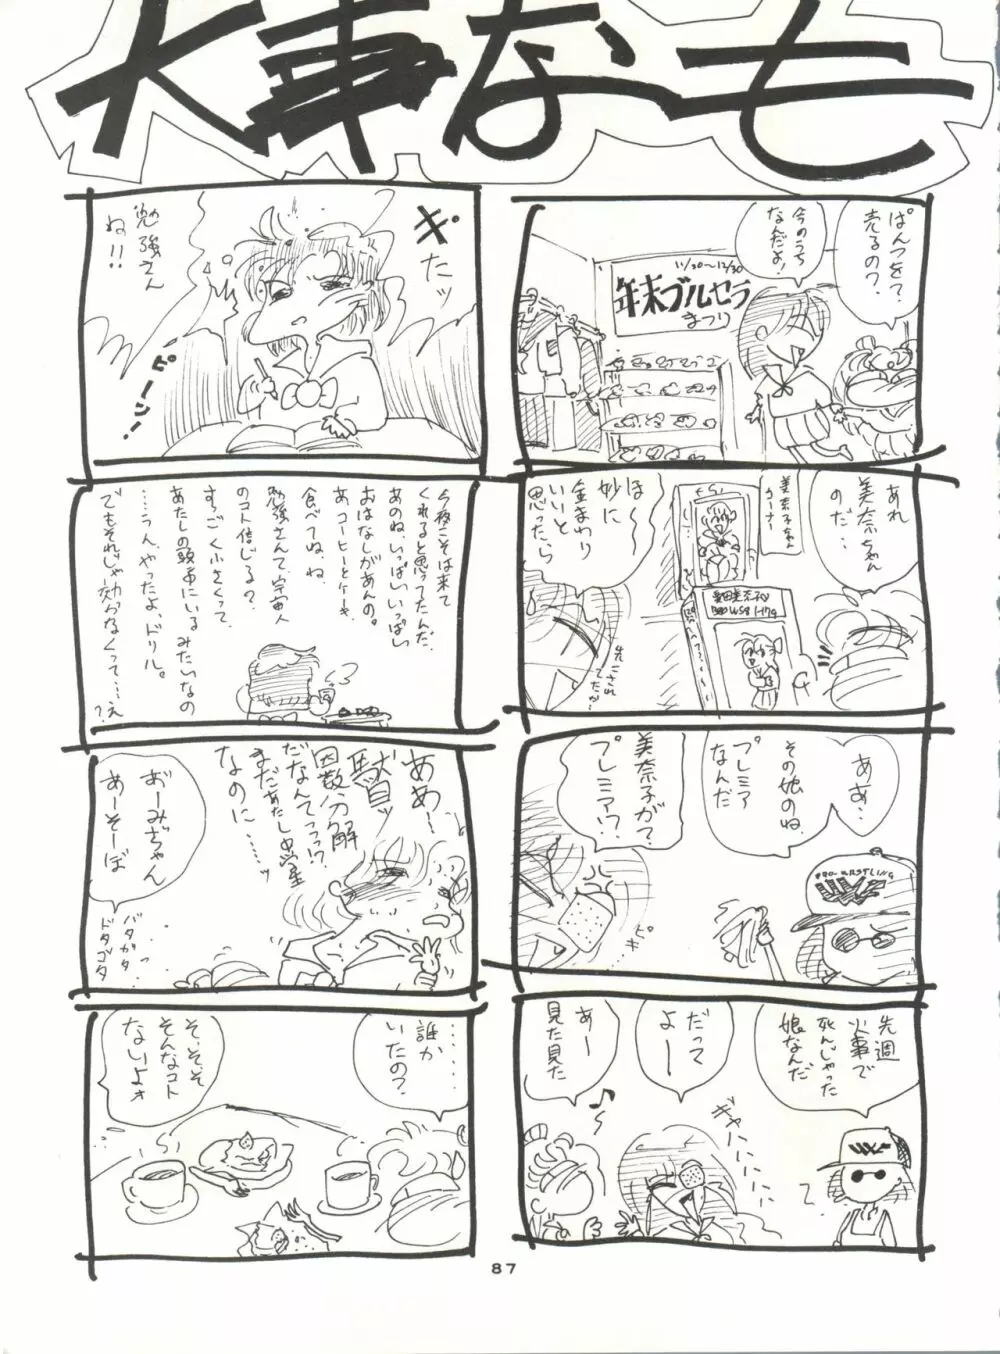 大事なーも
ぱんつを?
売るの?
今のうち
なんだよ!
11/30〜12/30
年末ブルセラ
まつり
あれ
美奈ちゃん
のだ…
美奈子ちゃん
コーナー
ほ〜
妙に
金まわり
いいと
思ったら
先こされ
てたか…
ああ…
その娘のね
プレミア
なんだ
美奈子が?
プレミア!?
ピキ
先週
火事で
死んじゃった
娘なんだ
だって
よー
あー
見た見た
ギャハハハハハハ
ギ
たッ
勉強さん
ね!!
ピーン!
今夜こそは来て
くれると思ってたんだ。
あのね、いっぱいいっぱい
おはなしがあんの。
あ、コーヒーとケーキ
食べてね、ね
勉強さんて、宇宙人
のコト信じる?
すっごく小さくって、
あたしの頭中にいるみたいなの
……うん、やったよ、ドリル。
でもそれじゃ効かなくって……え
?
ああー、
獣ッ
因数分解
だなんてっっ!?
まだあたし中学
なのに……ッ
おーみぢゃん
あーそーぼ
バタガタ
ドタゴタ
………
誰か
いたの?
そ、そ、そ
そんなコト
ないよォ
87